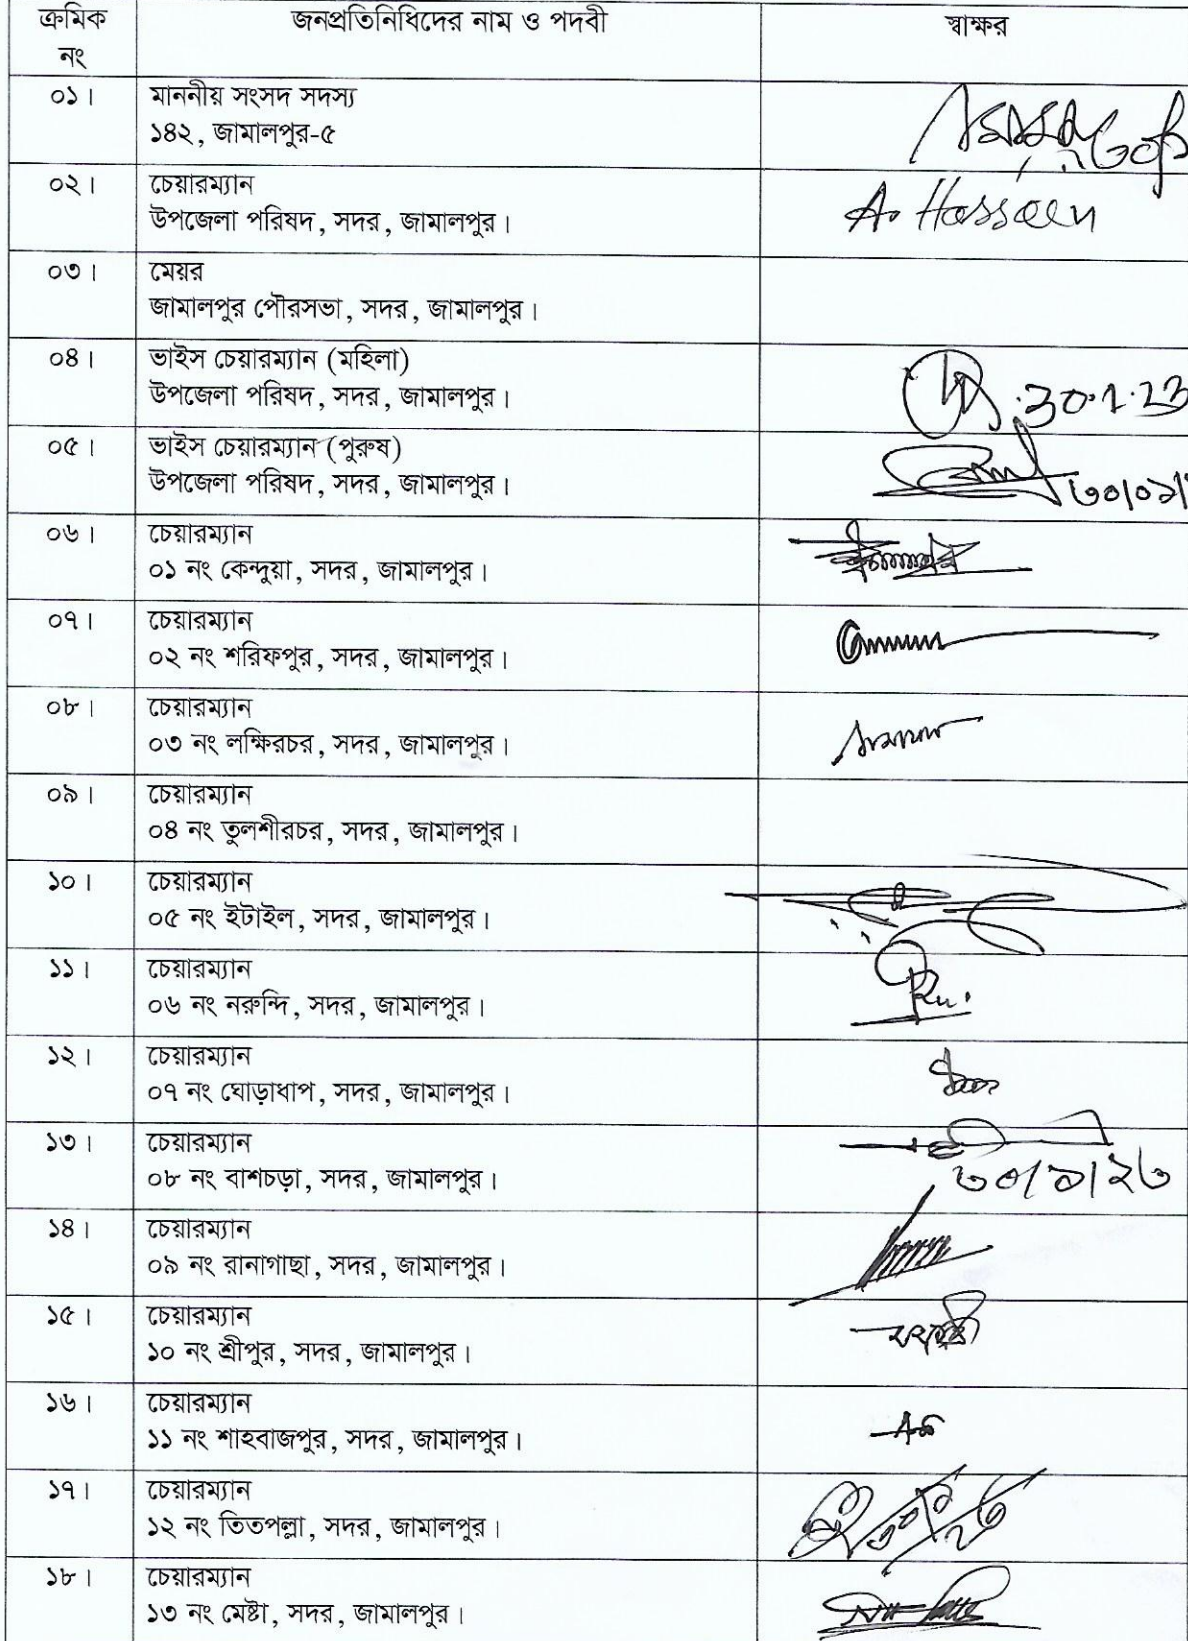 ক্রমিক নং জনপ্রতিনিধিদের নাম ও পদবী স্বাক্ষর
০১। মাননীয় সংসদ সদস্য
১৪২, জামালপুর-৫
০২। চেয়ারম্যান
উপজেলা পরিষদ, সদর, জামালপুর।
A. Hossaen
০৩। মেয়র
জামালপুর পৌরসভা, সদর, জামালপুর।
০৪। ভাইস চেয়ারম্যান (মহিলা)
উপজেলা পরিষদ, সদর, জামালপুর।
30.1.23
০৫। ভাইস চেয়ারম্যান (পুরুষ)
উপজেলা পরিষদ, সদর, জামালপুর।
৩০/০১/
০৬। চেয়ারম্যান
০১ নং কেন্দুয়া, সদর, জামালপুর।
০৭। চেয়ারম্যান
০২ নং শরিফপুর, সদর, জামালপুর।
০৮। চেয়ারম্যান
০৩ নং লক্ষিরচর, সদর, জামালপুর।
০৯। চেয়ারম্যান
০৪ নং তুলশীরচর, সদর, জামালপুর।
১০। চেয়ারম্যান
০৫ নং ইটাইল, সদর, জামালপুর।
১১। চেয়ারম্যান
০৬ নং নরুন্দি, সদর, জামালপুর।
১২। চেয়ারম্যান
০৭ নং ঘোড়াধাপ, সদর, জামালপুর।
১৩। চেয়ারম্যান
০৮ নং বাশচড়া, সদর, জামালপুর।
৩০/১/২৩
১৪। চেয়ারম্যান
০৯ নং রানাগাছা, সদর, জামালপুর।
১৫। চেয়ারম্যান
১০ নং শ্রীপুর, সদর, জামালপুর।
১৬। চেয়ারম্যান
১১ নং শাহবাজপুর, সদর, জামালপুর।
১৭। চেয়ারম্যান
১২ নং তিতপল্লা, সদর, জামালপুর।
১৮। চেয়ারম্যান
১৩ নং মেষ্টা, সদর, জামালপুর।